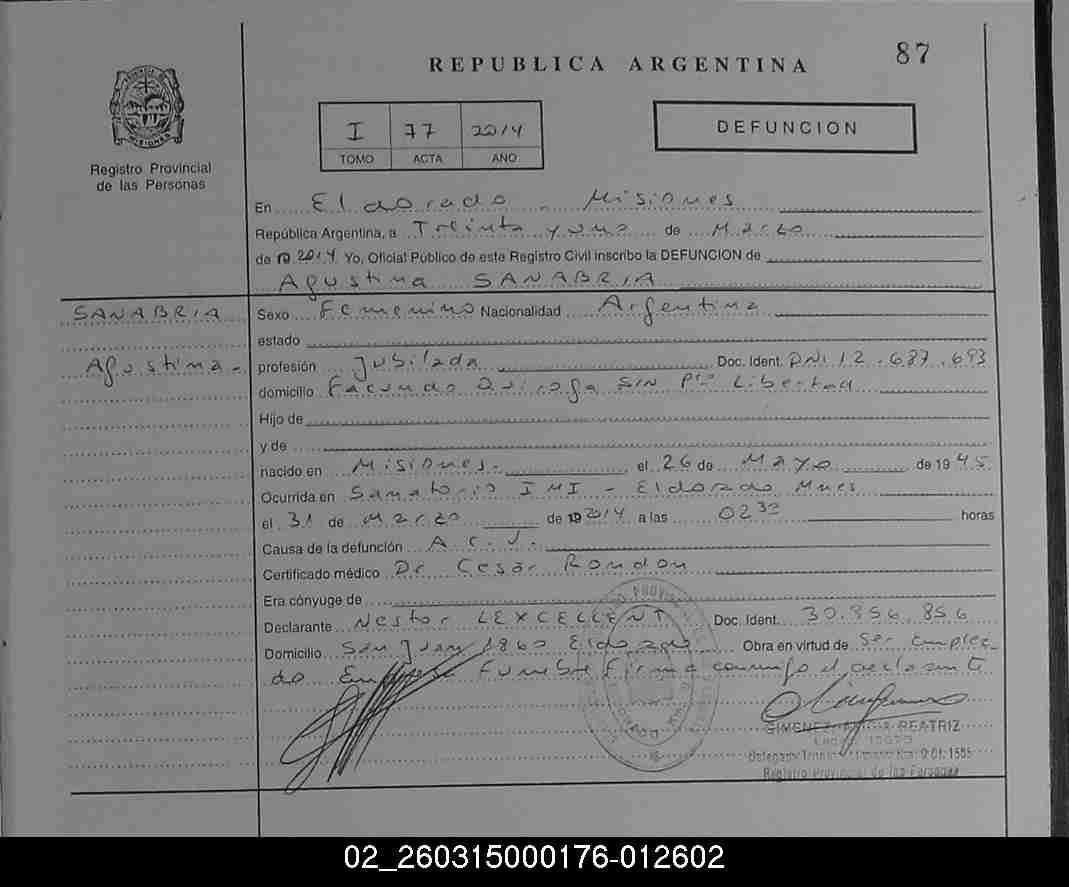 87
REPUBLICA ARGENTINA
I 77 2014
TOMO ACTA AÑO
DEFUNCION
Registro Provincial
de las Personas
En Eldorado - Misiones
República Argentina, a Treinta y uno de Marzo
de 19 2014 Yo, Oficial Público de este Registro Civil inscribo la DEFUNCION de
Agustina SANABRIA
SANABRIA
Agustina -
Sexo Femenino Nacionalidad Argentina
estado
profesión Jubilada Doc. Ident. DNI 12.687.693
domicilio Facundo Quiroga S/N Pto Libertad
Hijo de
y de
nacido en Misiones. el 26 de Mayo de 1945
Ocurrida en Sanatorio IMI - Eldorado Mnes
el 31 de Marzo de 19 2014 a las 02 horas
Causa de la defunción A C.V.
Certificado médico Dr Cesar Rondon
Era cónyuge de
Declarante Nestor LEXCELLENT Doc. Ident. 30.856.856
Domicilio San Juan 1860 Eldorado Obra en virtud de Ser emplea
do Empresa Funebre Firma conmigo el declarante
GIMENEZ BEATRIZ
Registro Provincial de las Personas
02_260315000176-012602